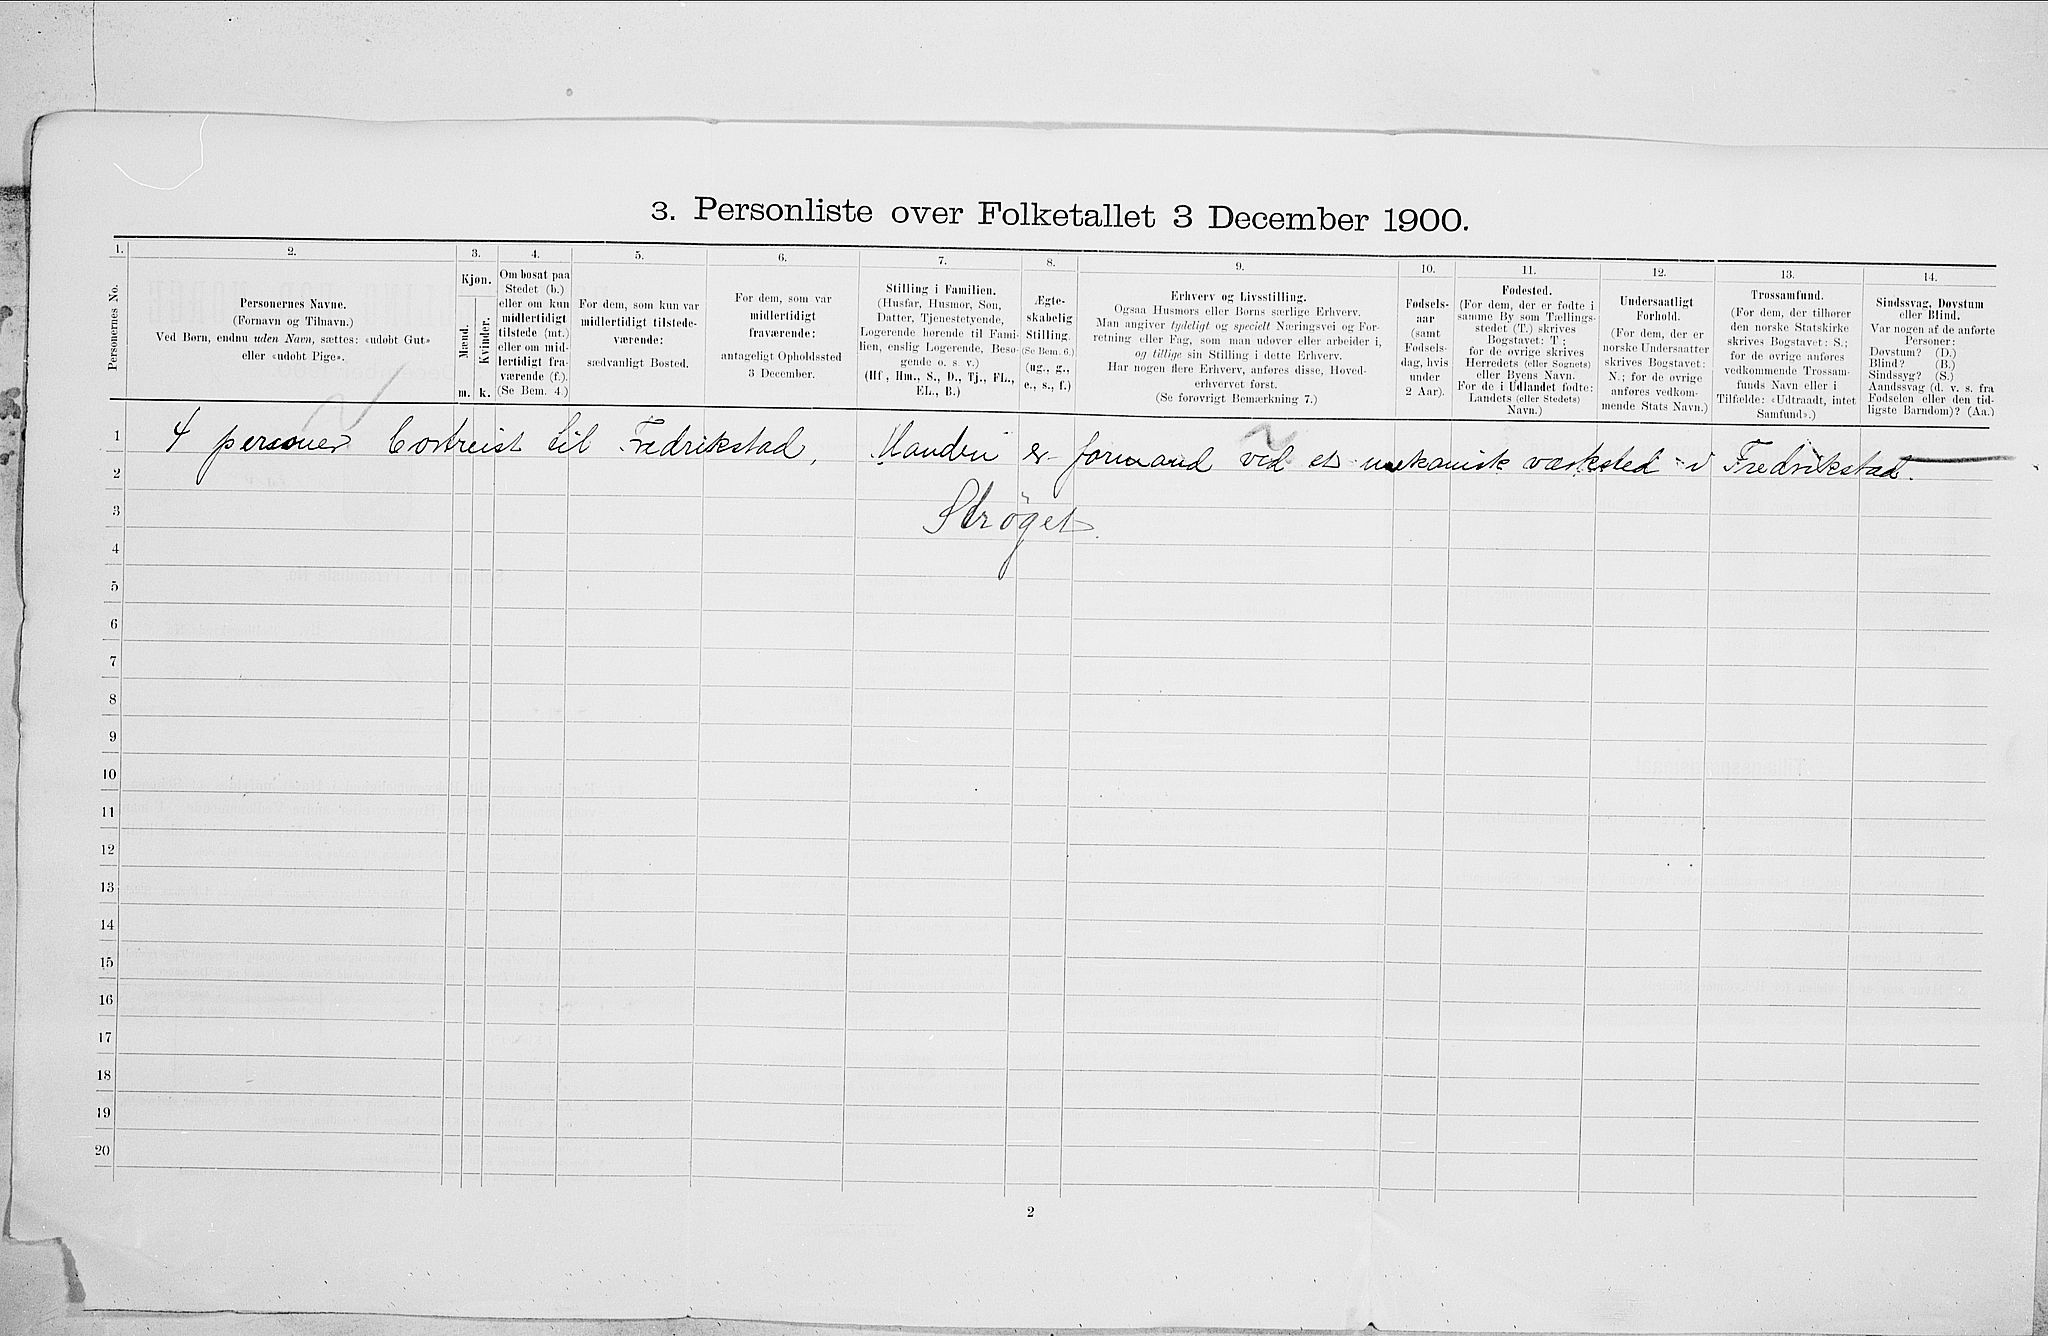 3. Personliste over Folketallet 3 December 1900.
1.
Personernes No.
2.
Personernes Navne.
(Fornavn og Tilnavn.)
Ved Børn, endnu uden Navn, sættes: «udøbt Gut»
eller «udøbt Pige».
3.
Kjøn.
Mænd.
Kvinder.
m. k.
4.
Om bosat paa
Stedet (b.)
eller om kun
midlertidigt
tilstede (mt.)
eller om mid-
lertidigt fra-
værende (f.).
(Se Bem. 4.)
5.
For dem, som kun var
midlertidigt tilstede-
værende:
sædvanligt Bosted.
6.
For dem, som var
midlertidigt
fraværende:
antageligt Opholdssted
3 December.
7.
Stilling i Familien.
(Husfar, Husmor, Søn,
Datter, Tjenestetyende,
Logerende hørende til Fami-
lien, enslig Logerende, Besø-
gende o. s. v.)
(Hf., Hm., S., D., Tj., FL.,
EL., B.)
8.
Ægte-
skabelig
Stilling.
(Se Bem. 6.)
(ug., g.,
e., s., f.)
9.
Erhverv og Livsstilling.
Ogsaa Husmors eller Børns særlige Erhverv.
Man angiver tydeligt og specielt Næringsvei og For-
retning eller Fag, som man udøver eller arbeider i,
og tillige sin Stilling i dette Erhverv.
Har nogen flere Erhverv, anføres disse, Hoved-
erhvervet først.
(Se forøvrigt Bemærkning 7.)
10.
Fødsels-
aar
(samt
Fødsels-
dag, hvis
under
2 Aar).
11.
Fødested.
(For dem, der er fødte i
samme By som Tællings-
stedet (T.) skrives
Bogstavet: T;
for de øvrige skrives
Herredets (eller Sognets)
eller Byens Navn.
For de i Udlandet fødte:
Landets (eller Stedets)
Navn.)
12.
Undersaatligt
Forhold.
(For dem, der er
norske Undersaatter
skrives Bogstavet:
N.; for de øvrige
anføres vedkom-
mende Stats Navn.)
13.
Trossamfund.
(For dem, der tilhører
den norske Statskirke
skrives Bogstavet: S.;
for de øvrige anføres
vedkommende Trossam-
funds Navn eller i
Tilfælde: «Udtraadt, intet
Samfund».)
14.
Sindssvag, Døvstum
eller Blind.
Var nogen af de anførte
Personer:
Døvstum? (D.)
Blind? (B.)
Sindssyg? (S.)
Aandssvag (d. v. s. fra
Fødselen eller den tid-
ligste Barndom)? (Aa.)
1 4 personer bortreist til Fredrikstad, Manden er formand ved et mekanisk værksted i Fredrikstad.
2
3 Strøget.
4
5
6
7
8
9
10
11
12
13
14
15
16
17
18
19
20
2